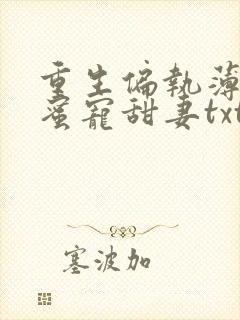 重生偏執薄
蜜寵甜妻txt
塞波加